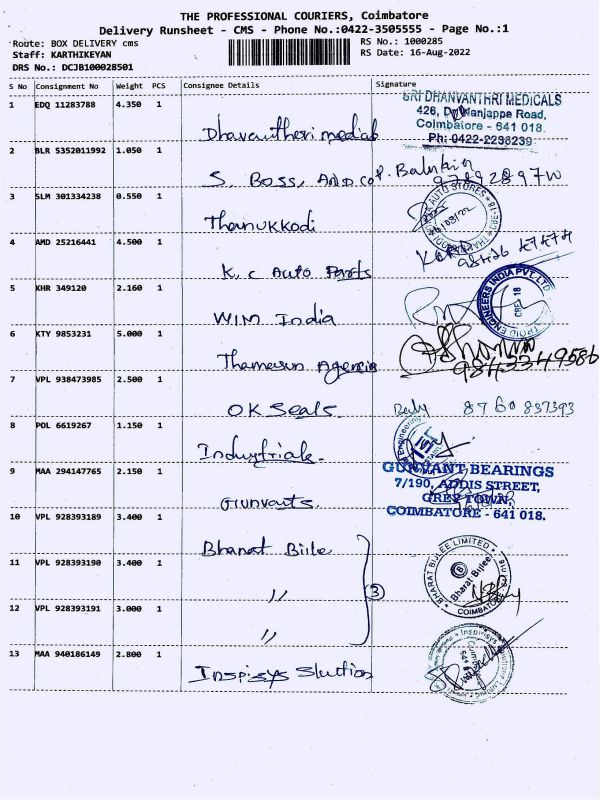 THE PROFESSIONAL COURIERS, Coimbatore
Delivery Runsheet - CMS - Phone No.:0422-3505555 - Page No.:1
Route: BOX DELIVERY cms RS No.: 1000285
Staff: KARTHIKEYAN RS Date: 16-Aug-2022
DRS No.: DCJB100028501
S No Consignment No Weight PCS Consignee Details Signature
1 EDQ 11283788 4.350 1
SRI DHANVANTHRI MEDICALS
426, Dr. Nanjappa Road,
Coimbatore - 641 018.
Ph: 0422-2238239
Dhavantheri medical
2 BLR 5352011992 1.050 1
S. Boss, And.co
3 SLM 301334238 0.550 1
AUTO STORES
Thanukkodi
4 AMD 25216441 4.500 1
K.C Auto Parts
98426 47474
5 KHR 349120 2.160 1
ENGINEERS INDIA PVT LTD
CBE. 18
WIM India
6 KTY 9853231 5.000 1
Agencie
9843349586
7 VPL 938473985 2.500 1
OK Seals.
8760837393
8 POL 6619267 1.150 1
Engineering
Industrials.
9 MAA 294147765 2.150 1
GUNVANT BEARINGS
7/190, ADDIS STREET,
GREY TOWN,
COIMBATORE - 641 018.
Gunvants.
10 VPL 928393189 3.400 1
Bharat Bijle
11 VPL 928393190 3.400 1
BHARAT BIJLEE LIMITED
Bharat Bijlee
COIMBATORE
〃
3
12 VPL 928393191 3.000 1
〃
13 MAA 940186149 2.800 1
Inspisys
Inspisys Slution